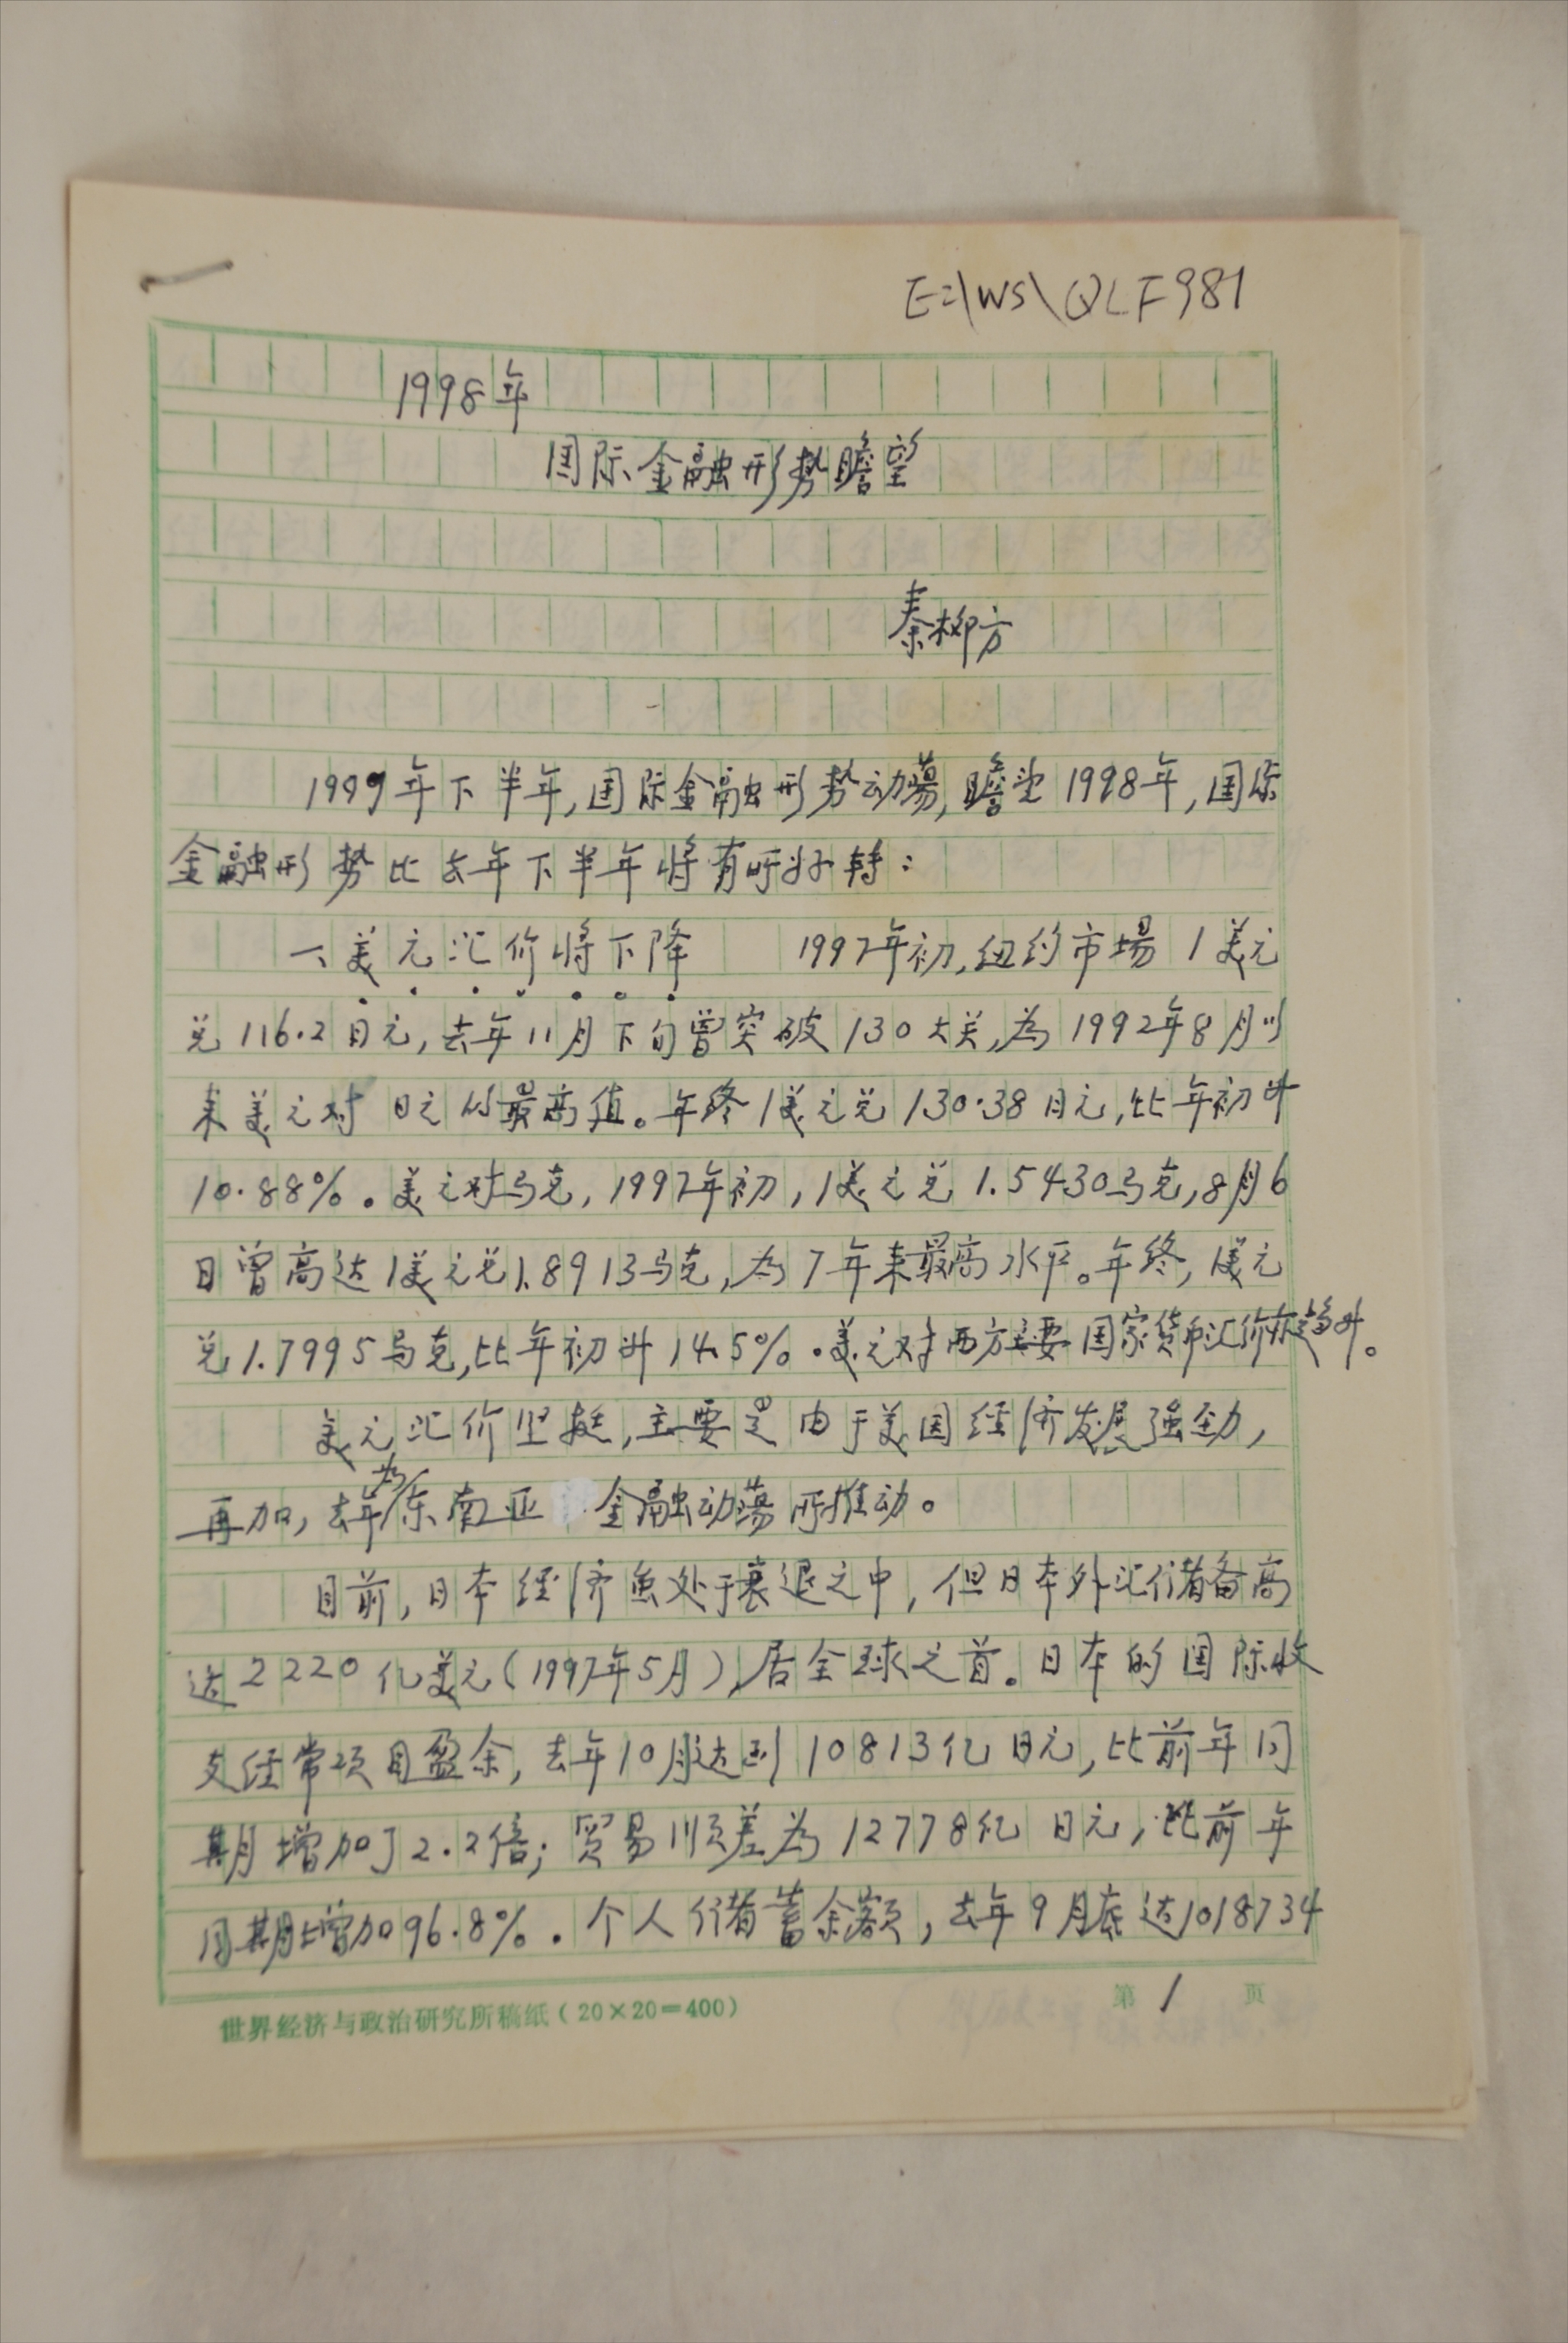 E:\WS\QLF981
1998年
国际金融形势瞻望
秦柳方
1997年下半年,国际金融形势动荡,瞻望1998年,国际
金融形势比去年下半年将有所好转:
一、美元汇价将下降 1997年初,纽约市场1美元
兑116.2日元,去年11月下旬曾突破130大关,为1992年8月以
来美元对日元的最高值。年终1美元兑130.38日元,比年初升
10.88%。美元对马克,1997年初,1美元兑1.5430马克,8月6
日曾高达1美元兑1.8913马克,为7年来最高水平。年终,1美元
兑1.7995马克,比年初升14.5%。美元对西方主要国家货币汇价亦是趋升。
美元汇价坚挺,主要是由于美国经济发展强劲,
再加,去年为东南亚金融动荡所推动。
目前,日本经济虽处于衰退之中,但日本外汇储备高
达2220亿美元(1997年5月),居全球之首。日本的国际收
支经常项目盈余,去年10月达到10813亿日元,比前年同
期增加了2.2倍;贸易顺差为12778亿日元,比前年
同期增加96.8%。个人储蓄余额,去年9月底达1018734
世界经济与政治研究所稿纸(20×20=400) 第1页